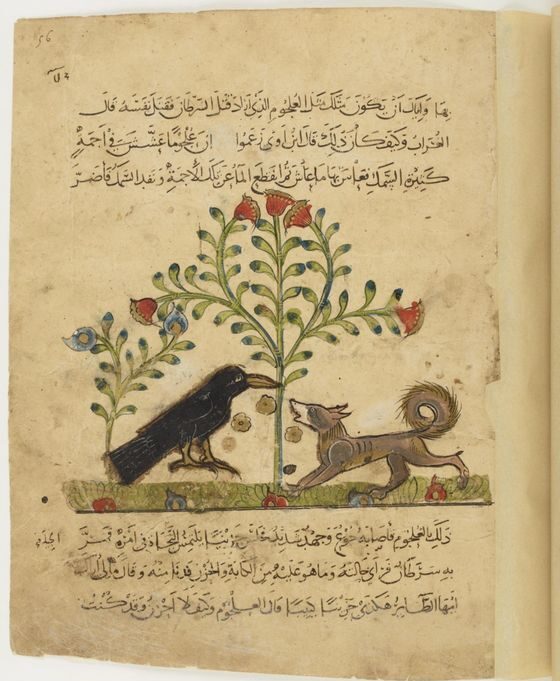 56
بها وإياك أن يكون مثلك مثل العلجوم الذي أراد قتل السرطان فقتل نفسه قال
الغراب وكيف كان ذلك قال ابن آوى زعموا ان علجوما عشش في اجمة
كثيرة السمك فعاش بها ما عاش ثم انقطع الماء عن تلك الأجمة ونفد السمك فأضر
ذلك بالعلجوم فأصابه جوع وجهد شديد فجلس حزينا يلتمس الحيلة في امره فمر
به سرطان فرأى حالته وما هو عليه من الكآبة والحزن فدنا منه وقال مالي أراك
ايها الطائر هكذى حزينا كئيبا قال العلجوم وكيف لا أحزن وقد كنت